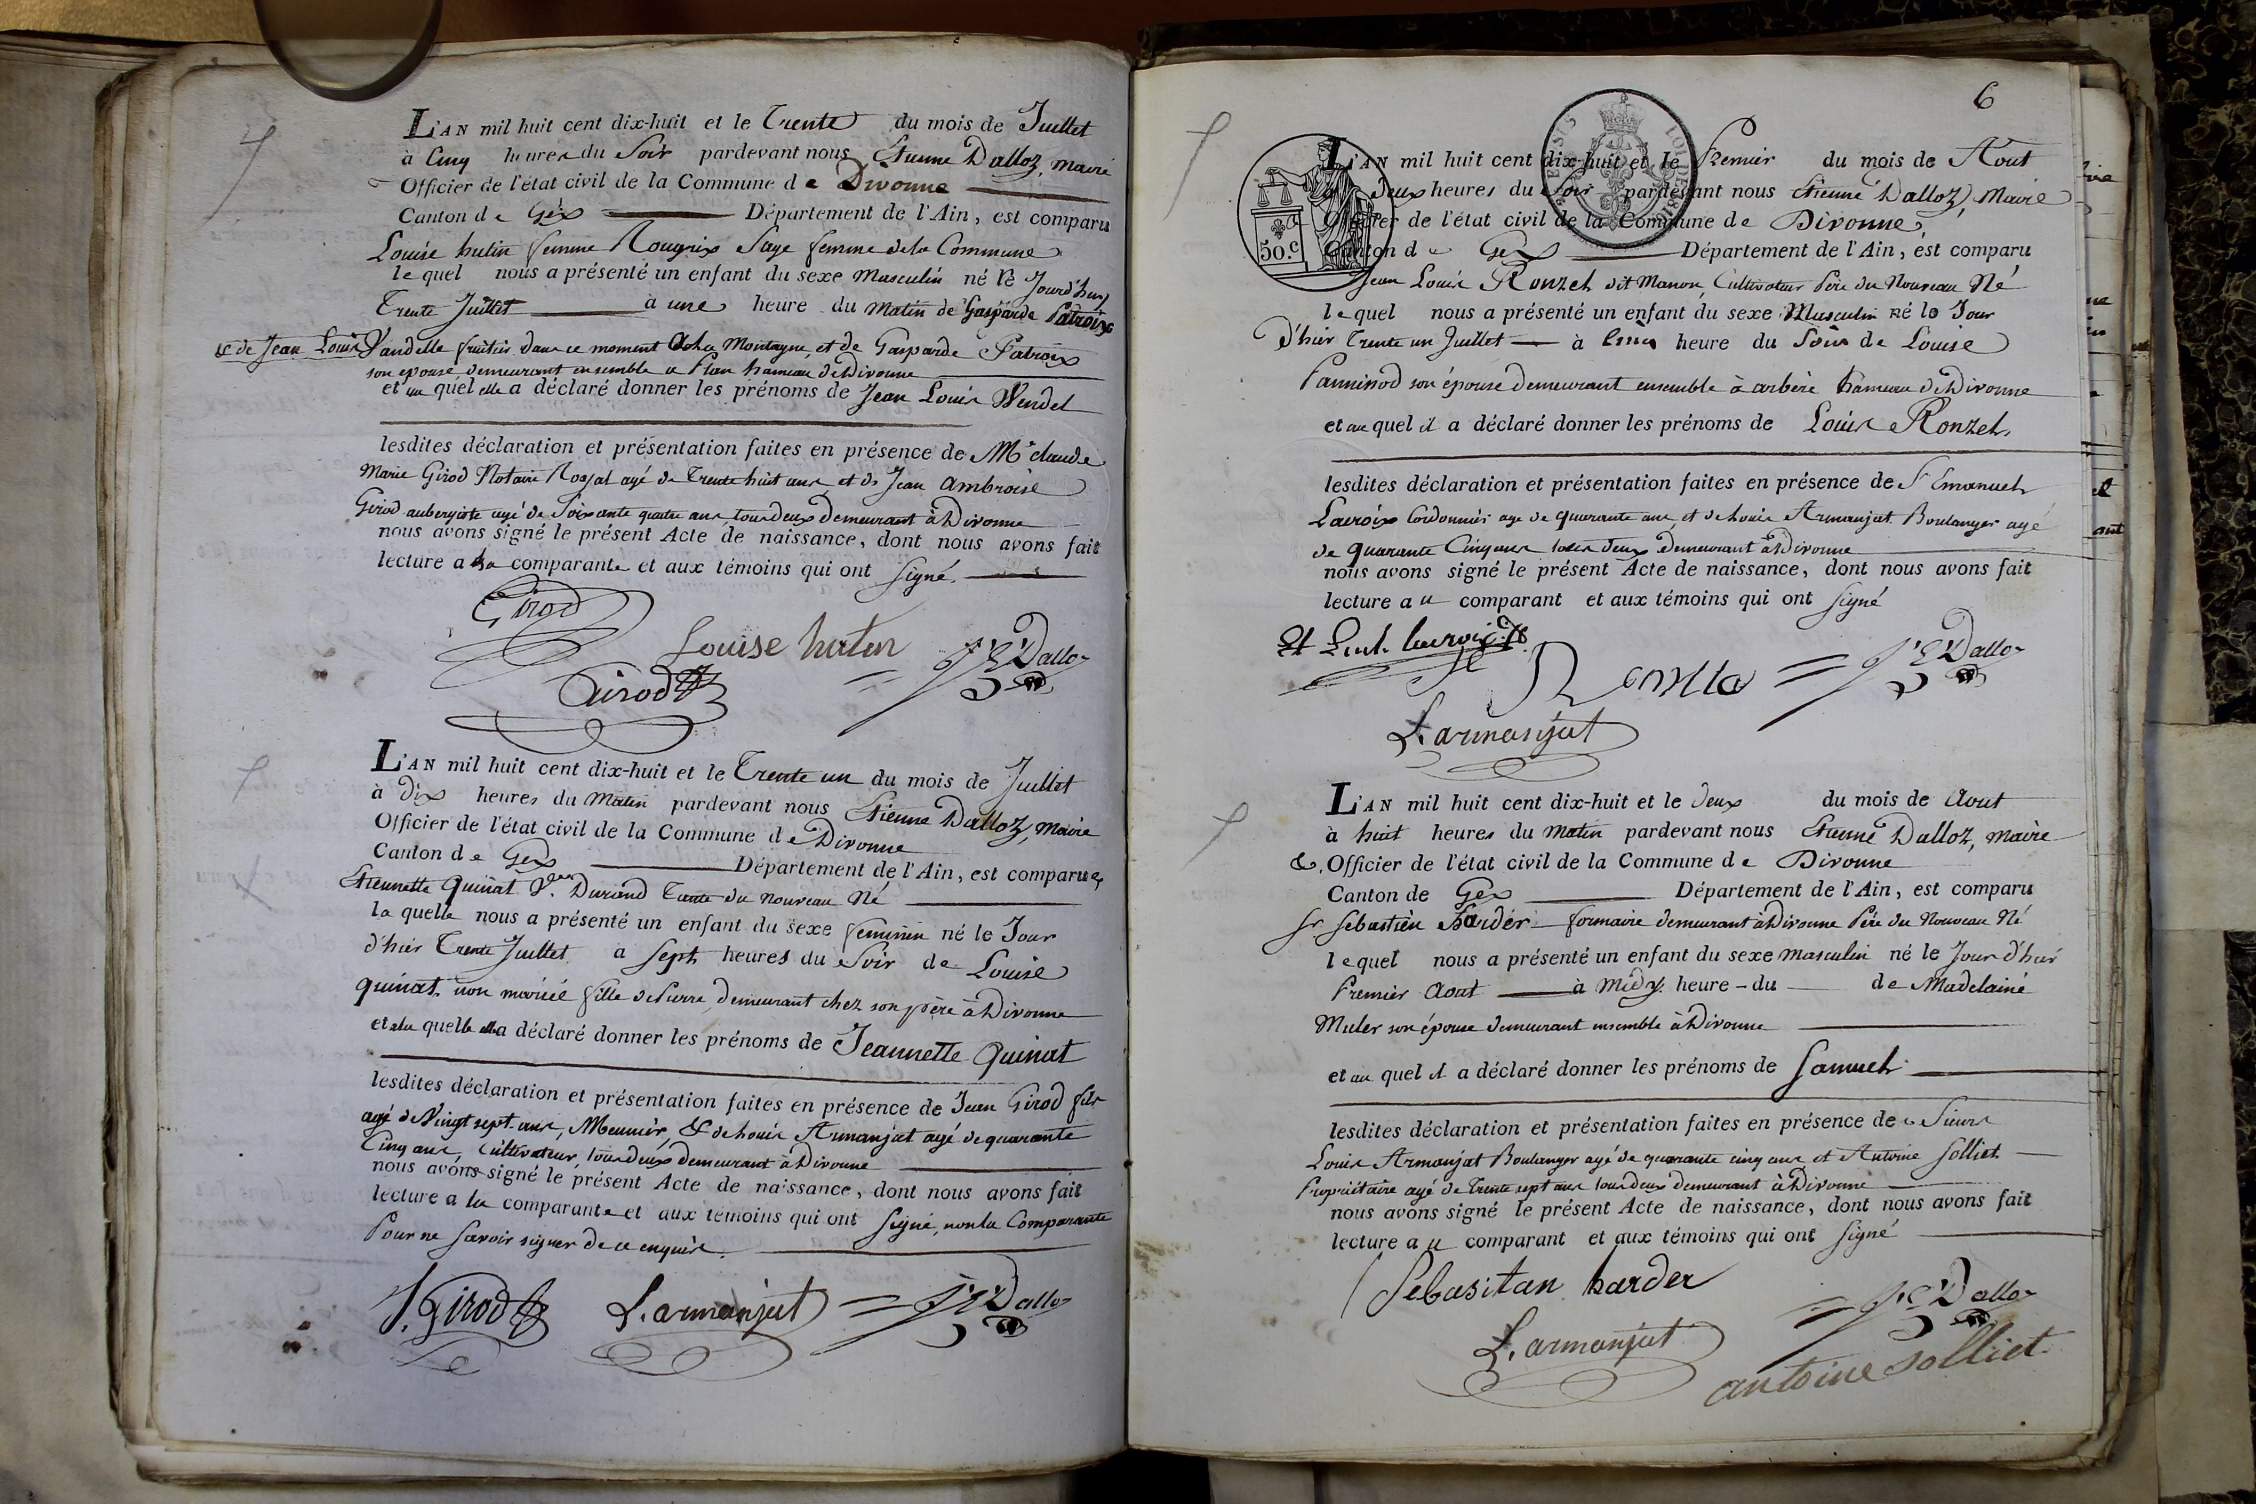 L'AN mil huit cent dix-huit et le Trente du mois de Juillet
à Cinq heures du Soir pardevant nous Etienne Dalloz, maire
Officier de l'état civil de la Commune de Divonne
Canton de Gex Département de l'Ain, est comparu
Louise hutin femme Rougrix Sage femme de la Commune
lequel nous a présenté un enfant du sexe Masculin né le Jourd'huy
Trente Juillet à une heure du Matin de Gasparde Patroix
& de Jean Louis Vandelle fruitier dans ce moment à la Montagne, et de Gasparde Patroix
son epouse demeurant ensemble a Plan hameau de Divonne
et au quel elle a déclaré donner les prénoms de Jean Louis Wendel
lesdites déclaration et présentation faites en présence de Mr claude
Marie Girod Notaire Royal agé de Trente huit ans, et de Jean Ambroise
Girod aubergiste agé de Soixante quatre ans, tous deux Demeurant à Divonne
nous avons signé le présent Acte de naissance, dont nous avons fait
lecture a la comparante et aux témoins qui ont signé
Girod
Louise hutin
Girod
J. E. Dalloz
L'AN mil huit cent dix-huit et le Trente un du mois de Juillet
à Dix heures du Matin pardevant nous Etienne Dalloz, maire
Officier de l'état civil de la Commune de Divonne
Canton de Gex Département de l'Ain, est comparue
Etiennette Quinat Ve. Durand Tante du nouveau Né
la quelle nous a présenté un enfant du sexe feminin né le Jour
d'hier Trente Juillet a Sept heures du Soir de Louise
Quinat, non mariée fille de Pierre, demeurant chez son père à Divonne
et a la quelle elle a déclaré donner les prénoms de Jeannette Quinat
lesdites déclaration et présentation faites en présence de Jean Girod fils
agé de Vingt sept ans, Meunier, & de Louis Armanjat agé de quarante
Cinq ans, Cultivateur, tous deux demeurant à Divonne
nous avons signé le présent Acte de naissance, dont nous avons fait
lecture a la comparante et aux témoins qui ont signé, non la Comparante
Pour ne savoir signer de ce enquise.
J. Girod
L. armanjat
J. E. Dalloz
6
50.c
L'AN mil huit cent dix-huit et le Premier du mois de Aout
Deux heures du Soir pardevant nous Etienne Dalloz, Maire
Officier de l'état civil de la Commune de Divonne,
Canton de Gex Département de l'Ain, est comparu
Jean Louis Ronzel dit Manon, Cultivateur Père du Nouveau Né
lequel nous a présenté un enfant du sexe Musculin né le Jour
d'hier Trente un Juillet à Cinq heure du Soir de Louise
Pannissod son épouse demeurant ensemble à arbère hameau de Divonne
et au quel il a déclaré donner les prénoms de Louis Ronzel,
lesdites déclaration et présentation faites en présence de Sr Emanuel
Lacroix Cordonnier age de quarante ans, et de Louis Armanjat Boulanger agé
de quarante Cinq ans tous deux Demeurant à Divonne
nous avons signé le présent Acte de naissance, dont nous avons fait
lecture au comparant et aux témoins qui ont signé
J. E. Dalloz
L. armanjat
L'AN mil huit cent dix-huit et le deux du mois de Aout
à huit heures du Matin pardevant nous Etienne Dalloz, maire
&. Officier de l'état civil de la Commune de Divonne
Canton de Gex Département de l'Ain, est comparu
Sr Sebastien harder formaire demeurant à Divonne Père du Nouveau Né
lequel nous a présenté un enfant du sexe masculin né le Jour d'hier
Premier Aout à Midy heure du de Madelaine
Muler son épouse demeurant ensemble à Divonne
et au quel il a déclaré donner les prénoms de Samuel
lesdites déclaration et présentation faites en présence de Sieurs
Louis Armanjat Boulanger agé de quarante cinq ans et Antoine Solliet
Propriétaire agé de Trente sept ans tous deux demeurant à Divonne
nous avons signé le présent Acte de naissance, dont nous avons fait
lecture au comparant et aux témoins qui ont signé
Sebasitan harder
J. E. Dalloz
L. armanjat
antoine Solliet